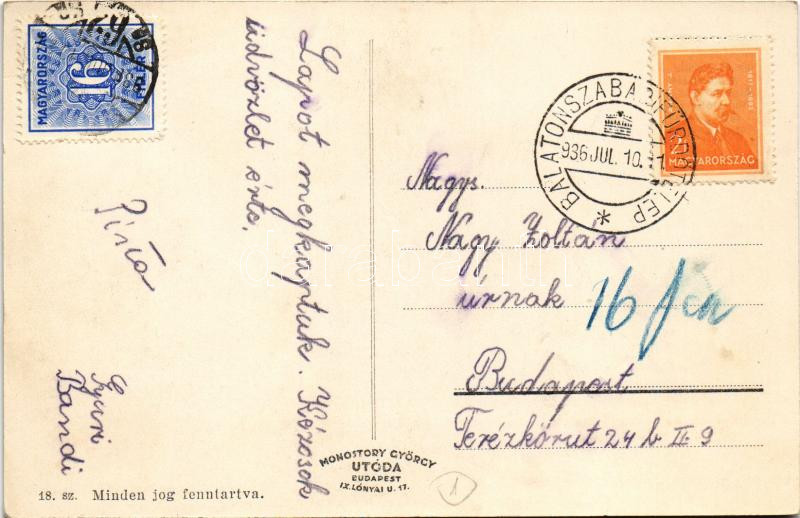 MAGYARORSZÁG
16
FILLÉR
Lapot megkaptuk. Közösok
üdvözlet érte.
Pista
Gyuri
Bandi
18. sz. Minden jog fenntartva.
MONOSTORY GYÖRGY
UTÓDA
BUDAPEST
IX. LÓNYAI U. 17.
BALATONSZABADIFÜRDŐTELEP
936 JUL. 10.
MAGYARORSZÁG
Nagys.
Nagy Zoltán
úrnak
16 fen
Budapest
Terézkörut 24 b II. 9
1
darabanth